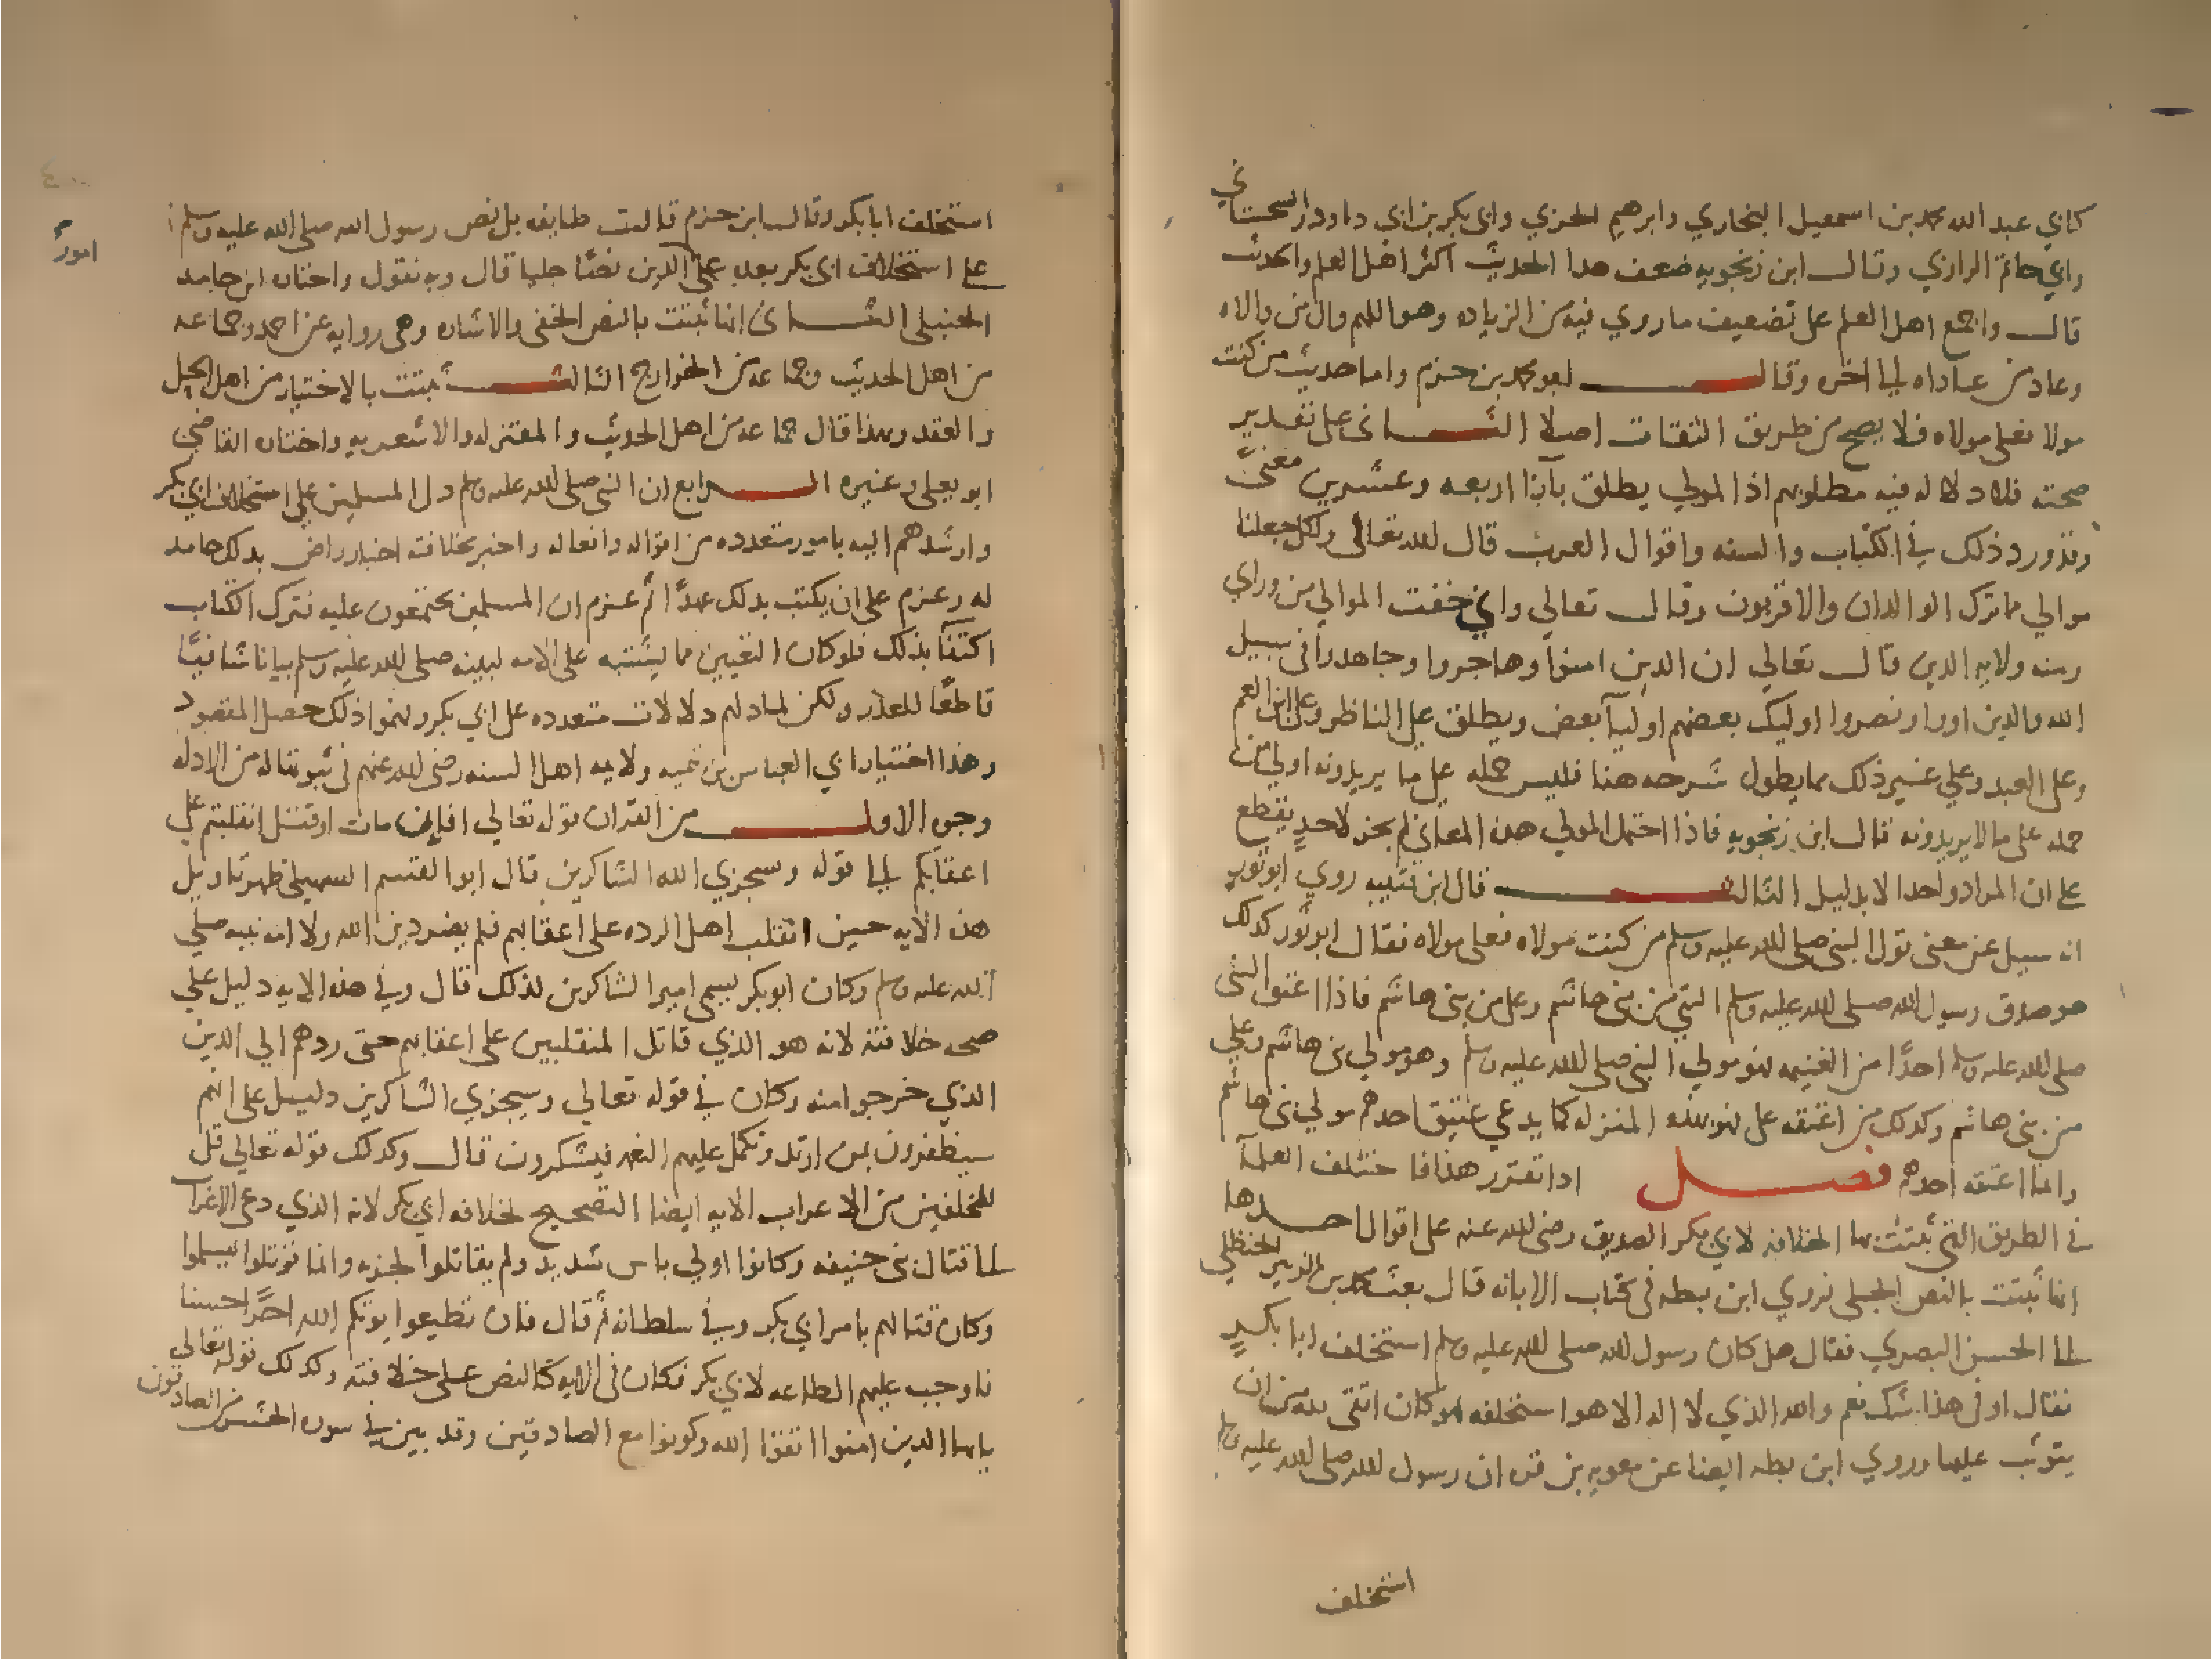 كابي عبد الله محمد بن اسمعيل البخاري وابرهيم الحربي وابي بكر بن ابي داود السجستاني
وابي حاتم الرازي وقال ابن زنجويه ضعف هذا الحديث اكثر اهل العلم والحديث
قال واجمع اهل العلم على تضعيف ما روي فيه من الزياده وهو اللهم وال من والاه
وعاد من عاداه الي اخره وقال ابو محمد بن حزم واما حديث من كنت
مولاه فعلي مولاه فلا يصح من طريق الثقات اصلا الثاني على تقدير
صحته فلا دلاله فيه مطلوبهم اذ المولي يطلق بازا اربعه وعشرين معنى
وقد ورد ذلك في الكتاب والسنه واقوال العرب قال الله تعالى ولكل جعلنا
موالي مما ترك الوالدان والاقربون وقال تعالي واني خفت الموالي من وراي
ومنه ولايه الدين قال تعالي ان الذين امنوا وهاجروا وجاهدوا في سبيل
الله والذين اووا ونصروا اوليك بعضهم اوليآ بعض ويطلق على الناظر وعلى ابن العم
وعلى العبد وعلي غير ذلك مما يطول شرحه هنا فليس حمله على ما يريدونه اولي من
حمله على ما لا يريدونه قال ابن زنجويه فاذا احتمل المولي هذه المعاني لم يجز لاحدٍ يقطع
على ان المراد واحدا الا بدليل الثالث قال ابن قتيبه روي ابو ثور
انه سيل عن معنى قول النبي صلى الله عليه وسلم من كنت مولاه فعلى مولاه فقال ابو ثور كذلك
هو صدق رسول الله صلى الله عليه وسلم النبي من بني هاشم وعلي من بني هاشم فاذا اعتق النبي
صلى الله عليه وسلم احدًا من الغنيمه فهو مولي النبي صلى الله عليه وسلم وهو مولي بني هاشم وعلي
من بني هاشم وكذلك من اعتقه على فهو بهذه المنزله كما يدعي عتيق احدهم مولي بني هاشم
وانما اعتقه احدهم فصل اذا تقرر هذا فاختلف العلمآ
في الطريق التي ثبتت بها الخلافه لابي بكر الصديق رضى الله عنه على اقوال احدها
انما ثبتت بالنص الجلى فروي ابن بطه في كتاب الابانه قال بعث محمد بن الزبير الحنظلي
الى الحسن البصري فقال هل كان رسول الله صلى الله عليه وسلم استخلف ابا بكرٍ
فقال اوفى هذا شك نعم والله الذي لا اله الا هو استخلفه لهو كان اتقى لله من ان
يتوثب عليها وروي ابن بطه ايضا عن معويه بن قره ان رسول الله صلى الله عليه وسلم
استخلف
استخلف ابا بكر وقال ابن حزم قالت طايفه بل نص رسول الله صلى الله عليه وسلم
على استخلاف ابي بكر بعده على الدين نصًا جليا قال وبه نقول واختاره ابن حامد
الحنبلي الثاني انما ثبتت بالنص الخفي والاشاره وهي روايه عن احمد وجماعه
من اهل الحديث وجماعه من الخوارج الثالث ثبتت بالاختيار من اهل الحل
والعقد وبهذا قال جماعه من اهل الحديث والمعتزله والاشعريه واختاره القاضي
ابو يعلي وغيره الرابع ان النبي صلى الله عليه وسلم دل المسلمين علي استخلاف ابي بكر
وارشدهم اليه بامور متعدده من اقواله وافعاله واخبر بخلافته اخبار راض بذلك حامد
له وعزم على ان يكتب بذلك عهدًا ثم عزم ان المسلمين يجتمعون عليه فترك الكتاب
اكتفآ بذلك فلو كان التعيين مما يشتبه على الامه لبينه صلى الله عليه وسلم بيانا شافيًا
قاطعًا للعذر ولكن لما دلهم دلالات متعدده على ابي بكر وفهموا ذلك حصل المقصود
وهذا اختيار ابي العباس بن تيميه ولايمه اهل السنه رضى الله عنهم في ثبوتها له من الادله
وجوه الاول من القران قوله تعالي افاين مات او قتل انقلبتم علي
اعقابكم الي قوله وسيجزي الله الشاكرين قال ابو القسم السهيلي ظهر تاويل
هذه الايه حين انقلب اهل الرده على اعقابهم فلم يضر دين الله ولا امه نبيه صلي
الله عليه وسلم وكان ابو بكر يسمى امير الشاكرين لذلك قال وفي هذه الايه دليل علي
صحه خلافته لانه هو الذي قاتل المنقلبين على اعقابهم حتى ردهم الي الدين
الذي خرجوا منه وكان في قوله تعالي وسيجزي الشاكرين دليل على انهم
سيظفرون بمن ارتد وتكمل عليهم النعمه فيشكرون قال وكذلك قوله تعالي قل
للمخلفين من الاعراب الايه ايضا التصحيح لخلافه ابي بكر لانه الذي دعى الاعراب
الى قتال بني حنيفه وكانوا اولي باس شديد ولم يقاتلوا لجزيه وانما قوتلوا ليسلموا
وكان قتالهم بامر ابي بكر وفي سلطانه ثم قال فان تطيعوا يوتكم الله اجرًا حسنا
فاوجب عليهم الطاعه لابي بكر فكان في الايه كالنص على خلافته وكذلك قوله تعالي
يايها الذين امنوا اتقوا الله وكونوا مع الصادقين وقد بين في سوره الحشر من الصادقون
امور